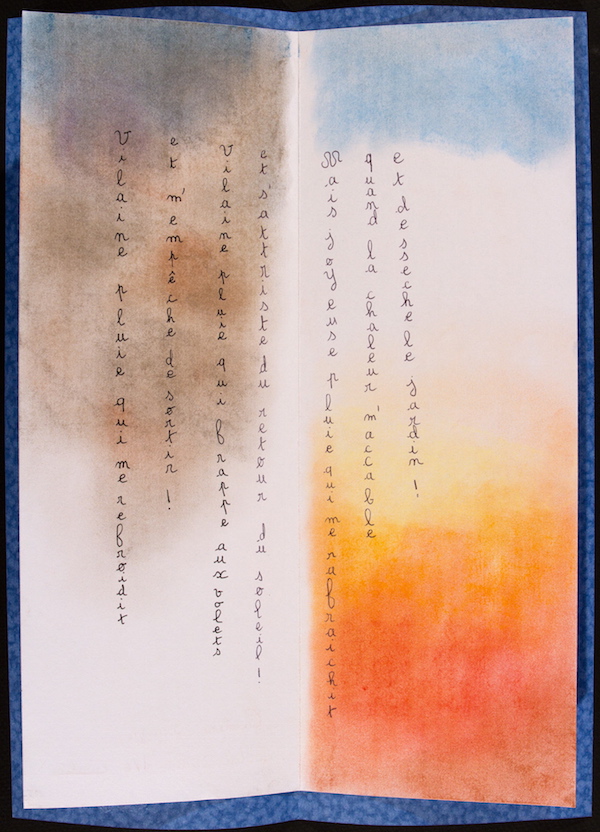 Vilaine pluie qui me refroidit
et m'empêche de sortir !
Vilaine pluie qui frappe aux volets
et s'attriste du retour du soleil !
Mais joyeuse pluie qui me rafraichit
quand la chaleur m'accable
et desseche le jardin !